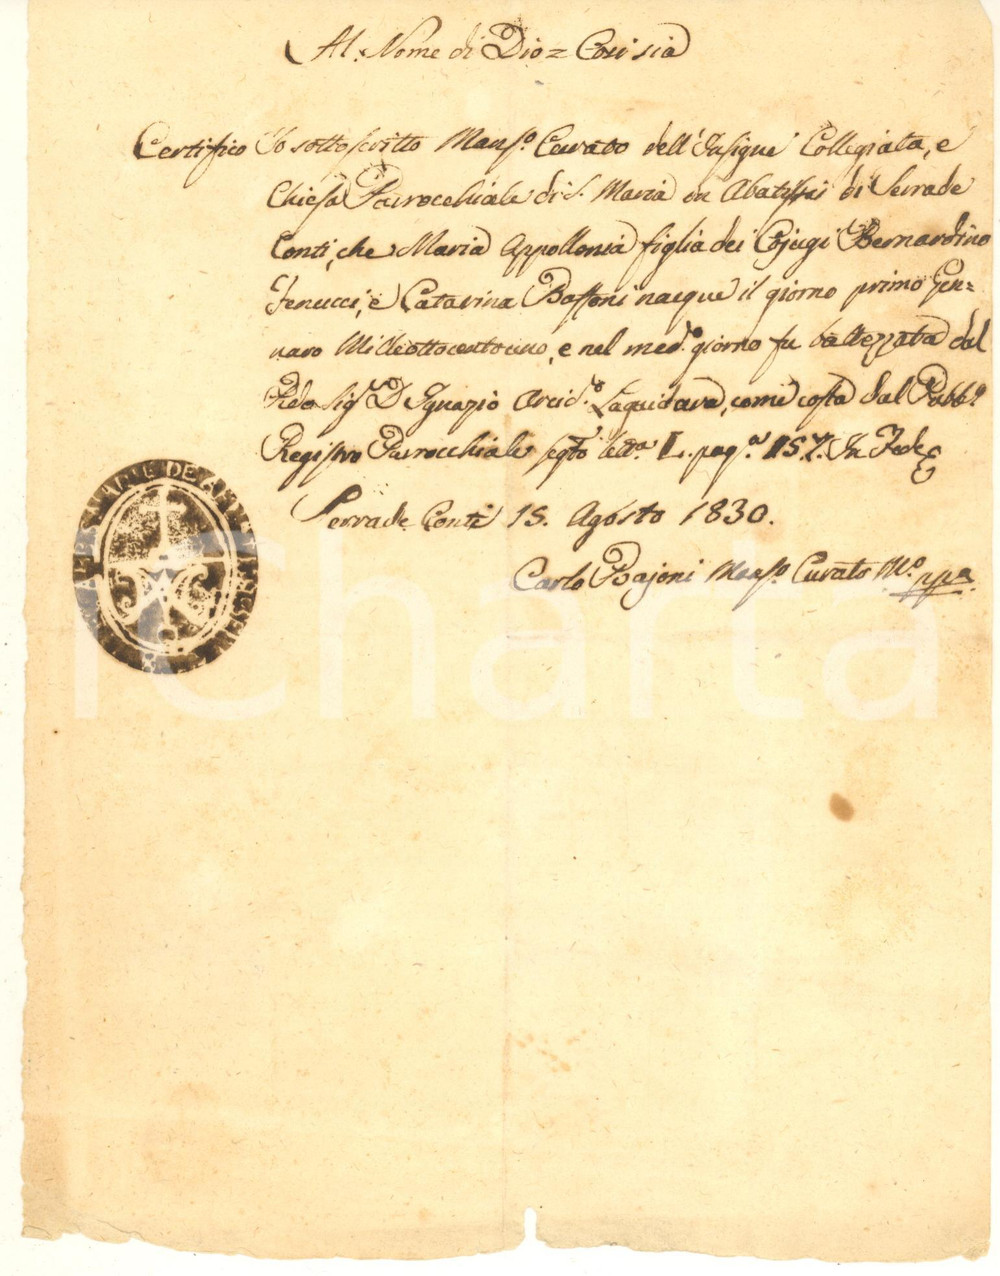 Al Nome di Dio = Così sia
Certifico Io sottoscritto Mans.o Curato dell'Insigne Collegiata, e
Chiesa Parrocchiale di S. Maria in Abatissis di Serrade
Conti, che Maria Appollonia figlia dei Cojugi Bernardino
Fenucci, e Catarina Baffoni nacque il giorno primo Gen=
naro Milleottocentouno, e nel med.o giorno fu battezzata dal
Sig.r D. Ignazio Arcid.o come costa dal Pubb.o
Registro Parrocchiale segto lett.a L. pag.a 157. In Fede
Serrade Conti 15. Agosto 1830.
Carlo Bajoni Mans.o Curato M.o ppa
iCharta